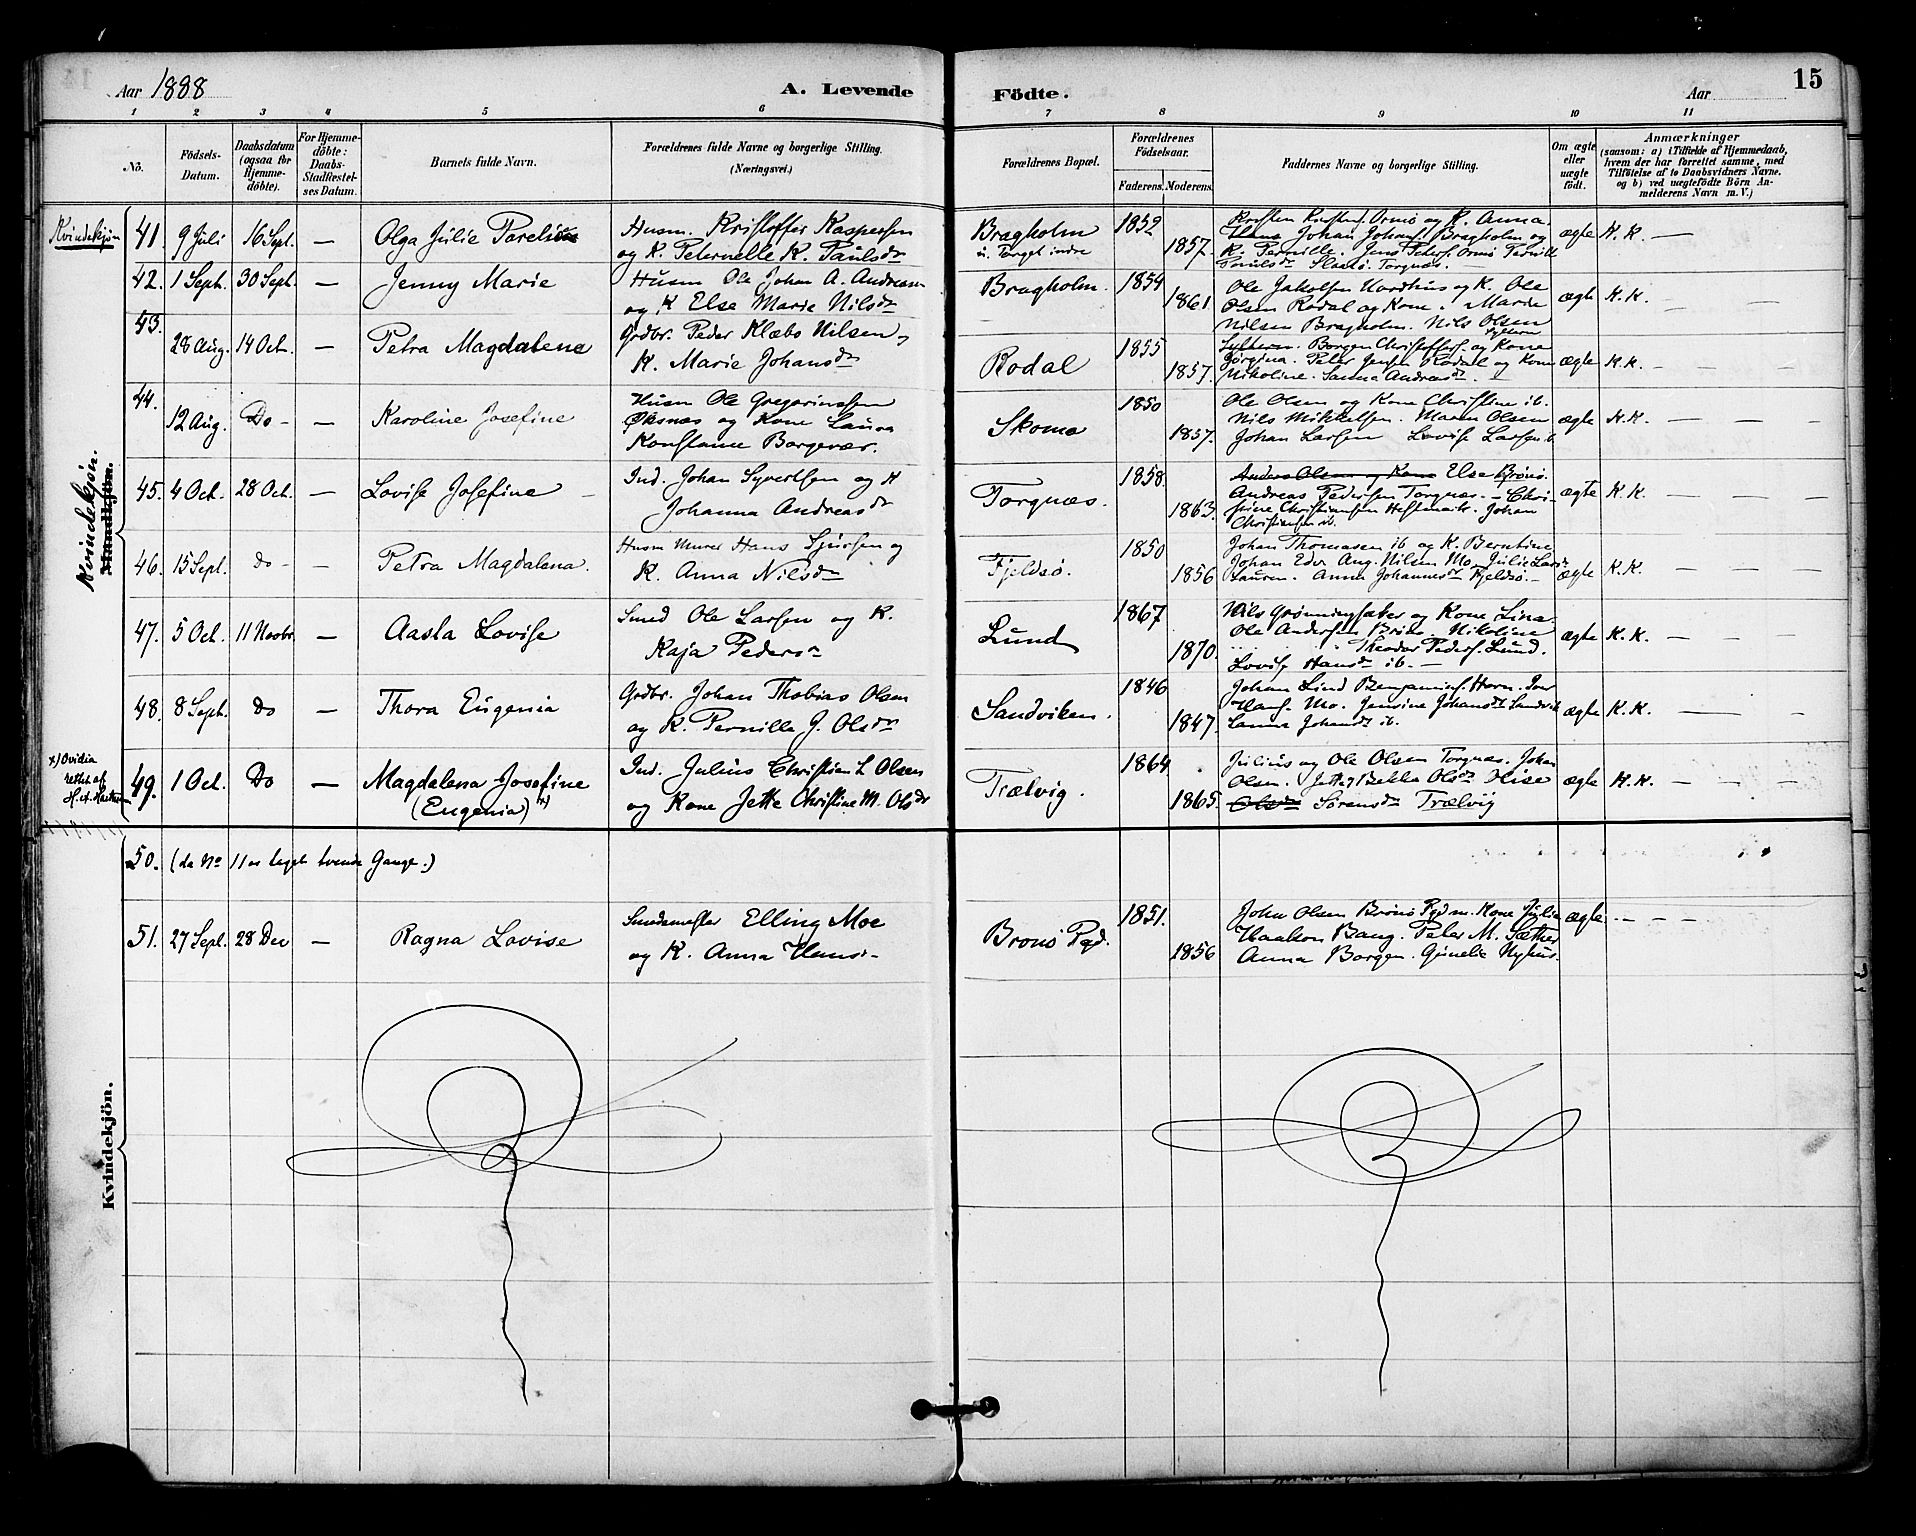 Aar 1888 A. Levende Födte. Aar 15
1 2 3 4 5 6 7 8 9 10 11
No. Födsels-Datum. Daabsdatum (ogsaa for Hjemme-döbte). For Hjemme-döbte: Daabs-Stadfæstel-ses Datum. Barnets fulde Navn. Forældrenes fulde Navne og borgerlige Stilling. (Næringsvei.) Forældrenes Bopæl. Forældrenes Födselsaar. Faderens. Moderens. Faddernes Navne og borgerlige Stilling. Om ægte eller uægte födt. Anmærkninger (saasom: a) i Tilfælde af Hjemmedaab, hvem der har forrettet samme, med Tilföielse af to Daabsvidners Navne. og b) ved uægtefödte Börn An-melderens Navn m. V.)
Kvindekjøn
Kvindekjøn.
Mandkjön.
41. 9 Juli 16 Sept. — Olga Julie Parelise
Husm. Kristoffer Kaspersen
og K. Peternelle K. Paulsdr
Bragholm
u. Torget indre
1852
1857.
Ørmø og K. Anna
Johan Johans. Bragholm og
K. Pernille. Jens Peters. Ormø
Paulsdr Torgnæs.
ægte K. K. —
42. 1 Sept. 30 Sept. — Jenny Marie
Husm Ole Johan A. Andreasen
og K Else Marie Nilsdr
Bragholm.
1854
1861
Ole Jakobsen Nordhus og K. Ole
Olsen Rodal og Kone. Marie
Nilsen Bragholm. Nils Olsen
ægte K. K. — — —
43. 28 Aug. 14 Oct. — Petra Magdalena
Grdbr. Peder Klæbo Nilsen,
K. Marie Johansdr
Rodal
1855
1857.
Borgen Christoffers. og Kone
Jørgina. Peter Jensen Rodal og Kone
Nikoline. Sanna Andreasdr.
ægte K. K. — — —
44. 12 Aug. Do — — Karoline Josefine
Husm Ole Gregoriussen
Øksnæs og Kone Laura
Konstanse Borgevær.
Skomo
1850
1857.
Ole Olsen og Kone Christine ib.
Nils Mikkelsen. Maren Olsen
Johan Larsen Lovise Larsen ib.
ægte K. K. — — —
45. 4 Oct. 28 Oct. — Lovise Josefine —
Ind. Johan Syvertsen og K
Johanna Andreasdr
Torgnæs.
1858.
1863.
Anders Olsen og Kone Else Brønø.
Andreas Pedersen Torgnæs. — Chri-
stine Christiansen Johan
Christiansen ib.
ægte K. K. — —
46. 15 Sept. do — — Petra Magdalena.
Husm Murer Hans Sjursen og
K. Anna Nilsdr
Fjeldsø.
1850
1856
Johan Thomasen ib og K. Berntine
Johan Edv. Aug. Nilsen Mo. Julie
Lauren. Anna Johannesdr Fjeldsø.
ægte K. K. — — —
47. 5 Oct. 11 Novbr — Aasta Lovise
Smed Ole Larsen og K.
Kaja Pedersdr
Lund
1867
1870.
Nils Grønningsæter og Kone Lina.
Ole Andersen Brønø. Nikoline
Theodor Peders. Lund.
Lovise Hansdr ib. —
ægte K. K. — — —
48. 8 Sept. Do — Thora Eugenia
Grdbr. Johan Thobias Olsen
og K. Pernille J. Olsdr
Sandviken.
1846
1847.
Johan Lind Benjamins. Horn.
Hans. Mo. Jensine Johansdr Sandvik
Sanna Johansdr ib.
ægte K. K. — — —
x) Ovidia
rettet af
49. 1 Oct. Do — Magdalena Josefine
(Eugenia) x)
Ind. Julius Christian L Olsen
og Kone Jette Christine M. Olsdr
Trælvig.
1864
1865.
Julius og Ole Olsen Torgnæs. Johan
Olsen. Olsdr Olise
Olsdr Sørensdr Trælvig
ægte K. K. — — —
50. (da No 11 er taget tvende Gange.)
Kvindekjön.
51. 27 Sept. 28 Dec — Ragna Lovise
Smedemester Elling Moe
og K. Anna Hans.
Brønø Pgd.
1851.
1856
John Olsen Brønø Pgd m. Kone Julie
Haakon Bang. Peter M. Sæther
Anna Borgen. Gunelie Nyhus.
ægte. — — —